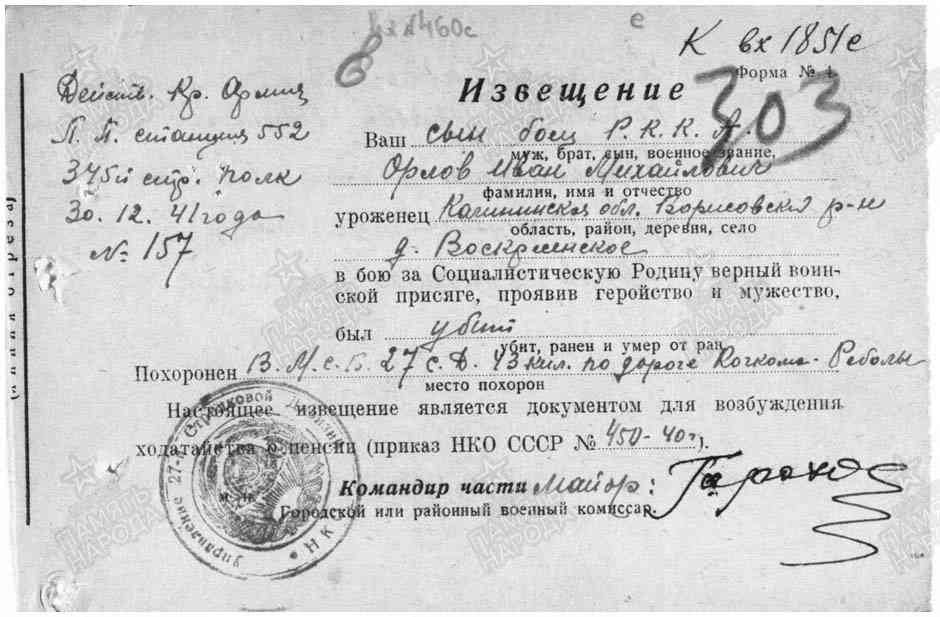 вх №460с
е
К вх 1851с
Форма № 4.
303
Действ. Кр. Армия
П. П. станция 552
345й стр. полк
30. 12. 41 года
№ 157
Извещение
Ваш сын боец Р. К. К. А.
муж, брат, сын, военное звание,
Орлов Иван Михайлович
фамилия, имя и отчество
уроженец Калининская обл. Борисовский р-н
область, район, деревня, село
д. Воскресенское
в бою за Социалистическую Родину верный воин-
ской присяге, проявив геройство и мужество,
был убит
убит, ранен и умер от ран
Похоронен В. М. с. Б. 27 с. Д. 43 кил. по дороге Кочкома-Реболы
место похорон
Настоящее извещение является документом для возбуждения
ходатайства о пенсии (приказ НКО СССР № 450-40г).
Командир части Майор:
Городской или районный военный комиссар.
Управление 27-й Стрелковой Дивизии
НКО
ПАМЯТЬ НАРОДА